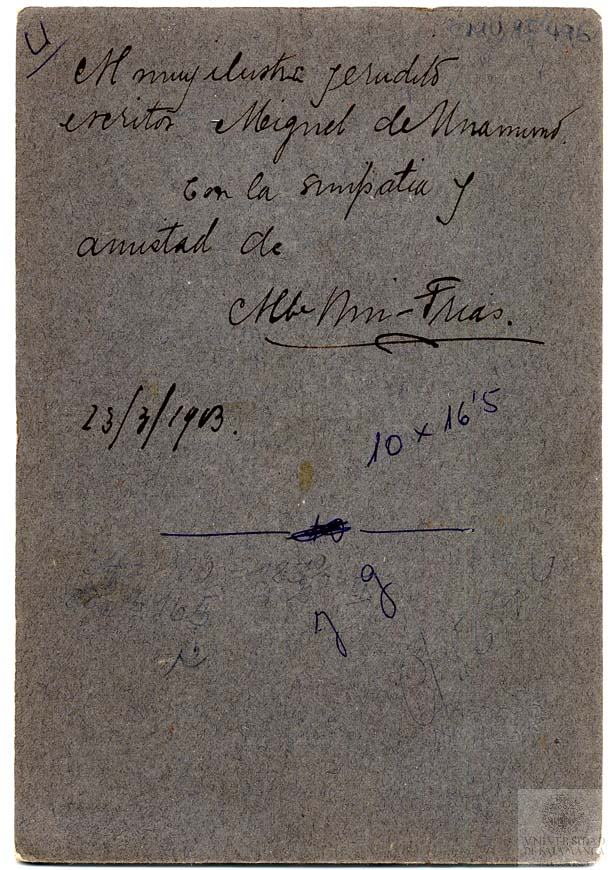 U
Al muy ilustre y erudito
escritor Miguel de Unamuno.
Con la simpatia y
amistad de
Albe Nin-Frias.
23/3/1903.
10 x 16'5
g
UNIVERSIDAD
DE SALAMANCA